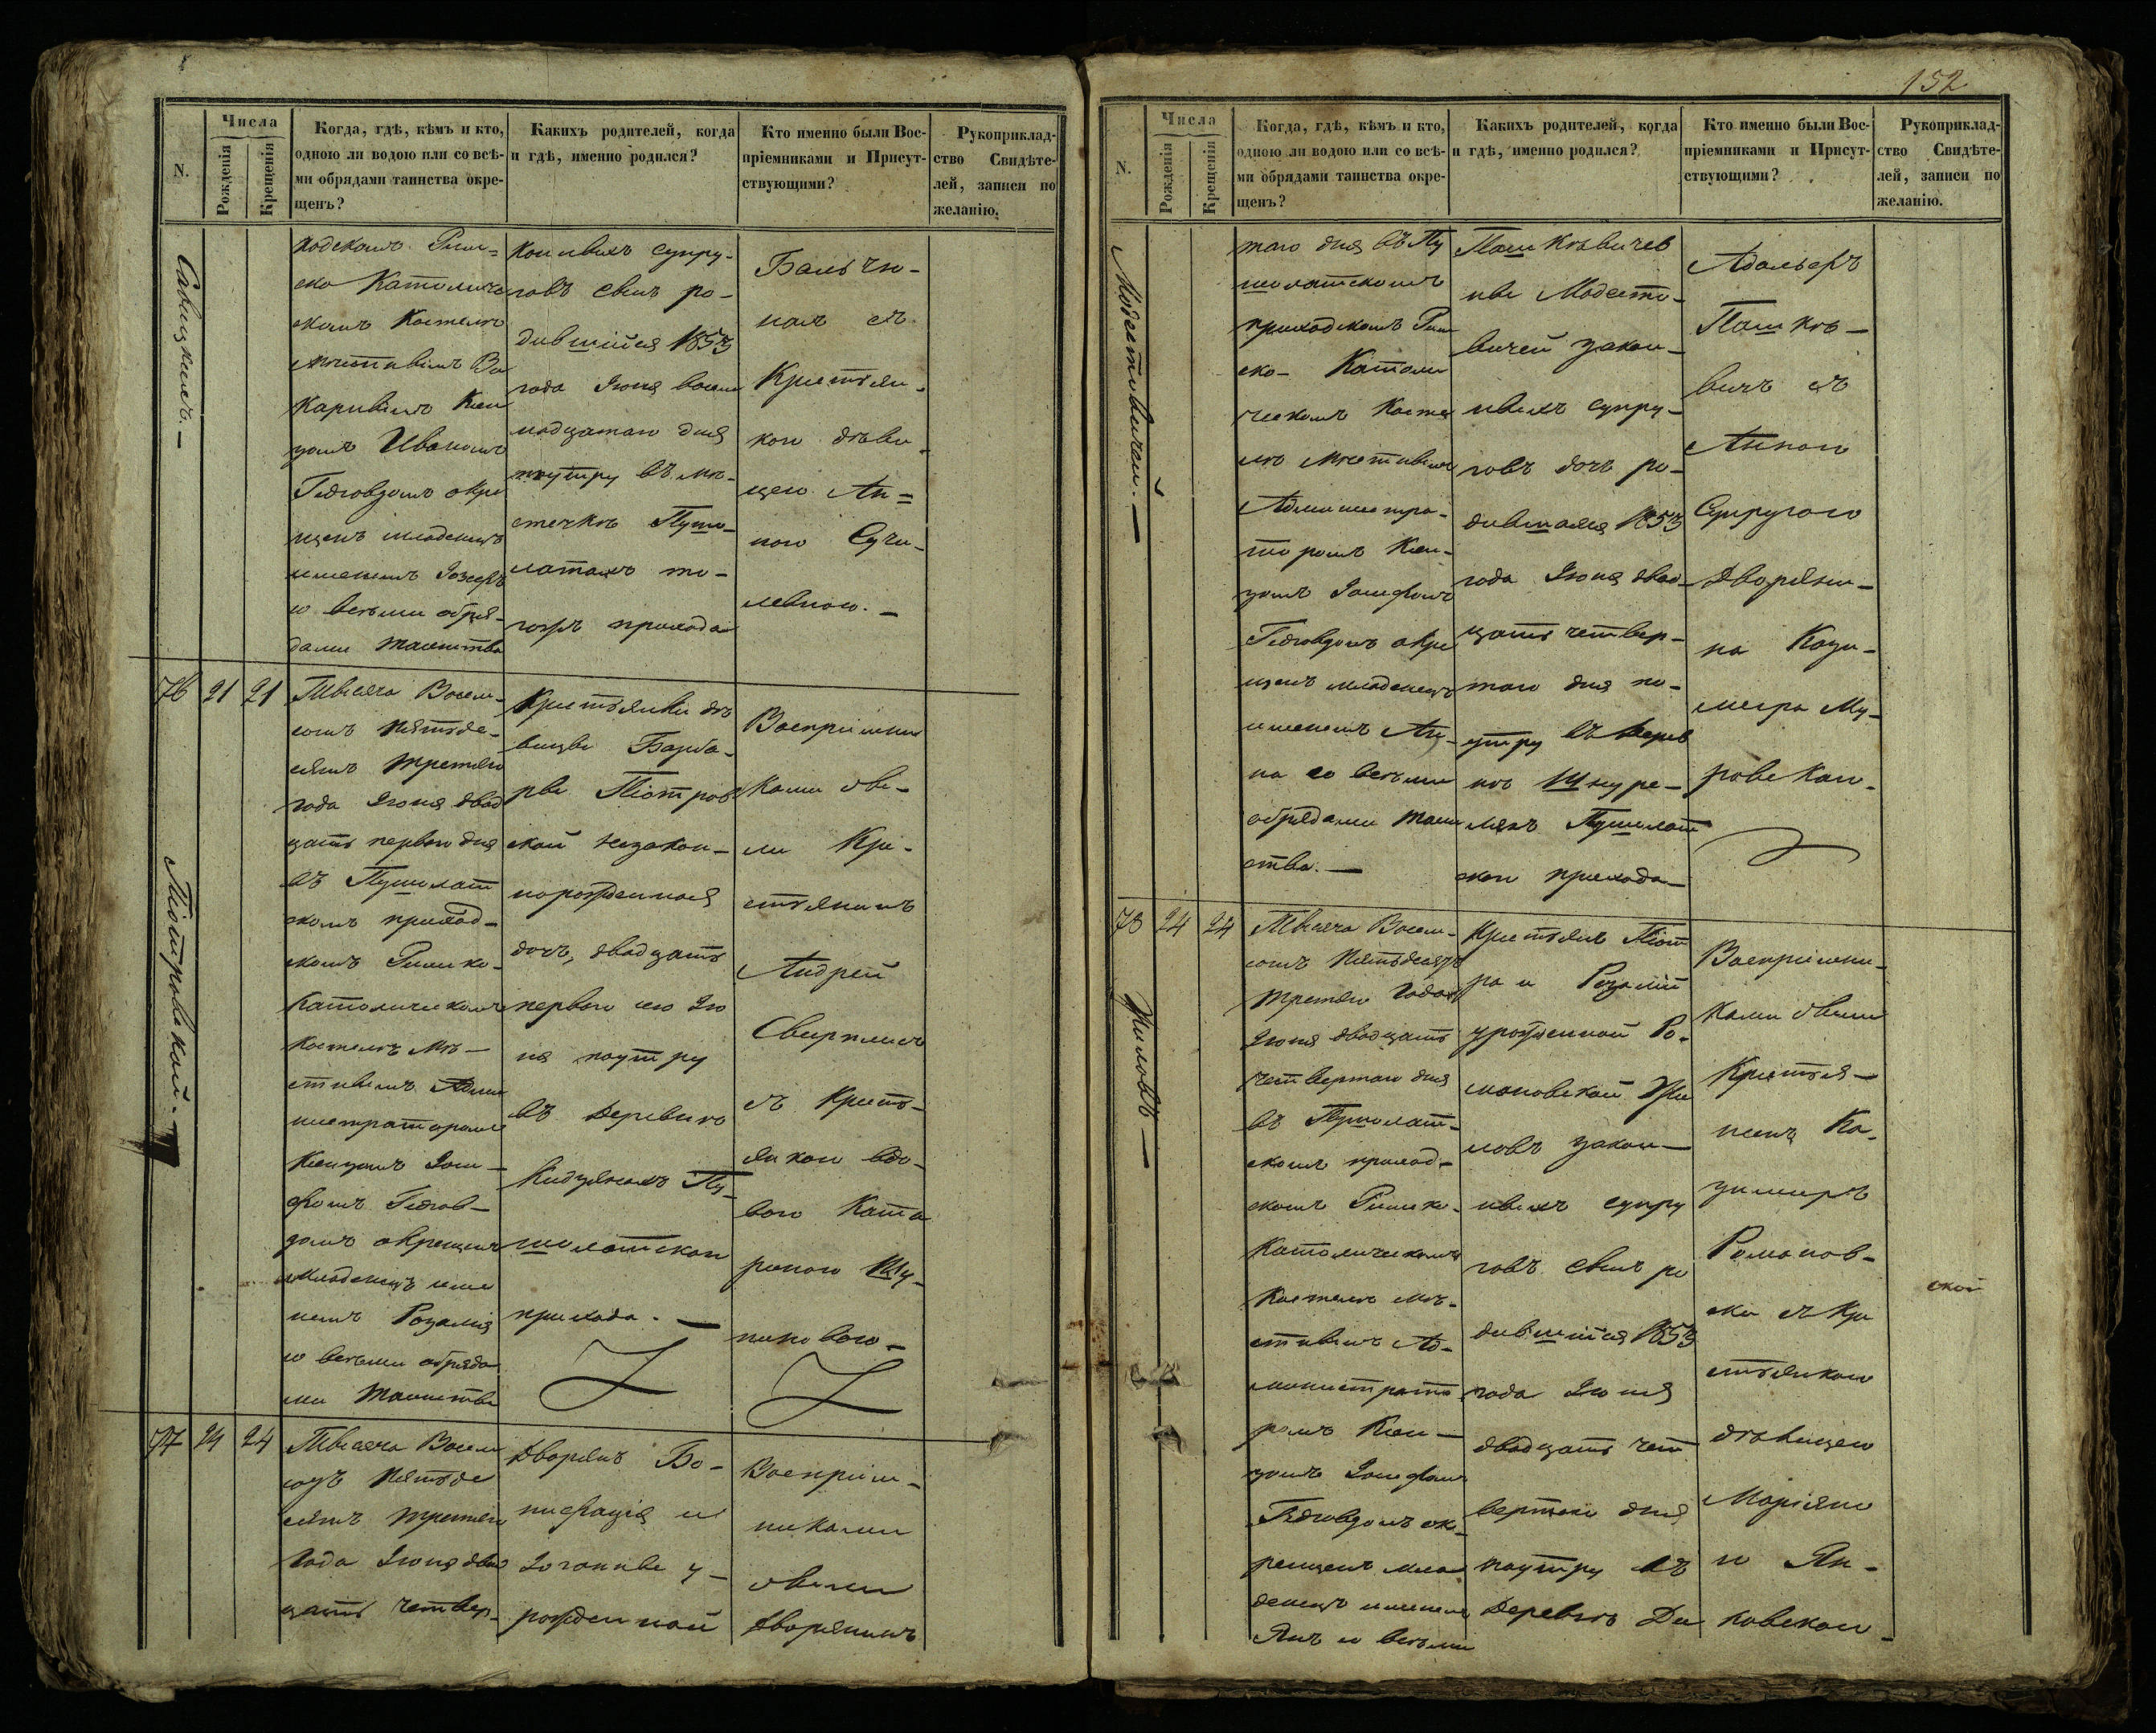 152
N.
Числа
Рожденія
Крещенія
Когда, гдѣ, кѣмъ и кто,
одною ли водою или со всѣ-
ми обрядами таинства окре-
щенъ?
Какихъ родителей, когда
и гдѣ, именно родился?
Кто именно были Вос-
пріемниками и Присут-
ствующими?
Рукоприклад-
ство Свидѣте-
лей, записи по
желанію.
Савицкимъ. —
ходскомъ Рим-
ско Католиче
скомъ Костелѣ
мѣстнымъ Ви
карнымъ Ксен
дзомъ Иваномъ
окре
щенъ младенецъ
именемъ Іозефъ
со всѣми обря-
дами Таинства
конныхъ супру-
говъ сынъ ро-
дившійся 1853
года Іюня восем
надцатаго дня
поутру въ мѣ-
стечкѣ Пушо-
латахъ то-
гожъ прихода
Бальчю-
нас съ
Крестьян-
кою дѣви-
цею Ан=
ною Сучи-
левною. —
76
21
21
Піотровской. —
Тысяча Восем-
сотъ Пятьде-
сятъ третьяго
года Іюня двад
цать перваго дня
въ Пушолат
скомъ приход-
скомъ Римско-
Католическомъ
Костелѣ мѣ-
стнымъ Адми
нистраторомъ
Ксендзомъ Іоси-
фомъ Гедгов-
домъ окрещенъ
младенецъ име
немъ Розалія
со всѣми обряда
ми Таинства
Крестьянки дѣ
вицы Барба-
ры Піотров
ской незакон-
норожденная
дочь, двадцать
перваго сего Ію
ня поутру
въ деревнѣ
Кидзянахъ Пу-
шолатскаго
прихода. —
Воспріемни
ками бы-
ли Кре-
стьянинъ
Андрей
съ Кресть-
янкою вдо-
вою Ката
риною Шу-
киновою —
77
24
24
Тысяча Восем
сотъ Пятьде
сятъ третьяго
года Іюня двад
цать четвер-
Дворянъ Бо-
нифація и
Іоганны у-
рожденной
Воспріем-
никами
были
Дворянинъ
N.
Числа
Рожденія
Крещенія
Когда, гдѣ, кѣмъ и кто,
одною ли водою или со всѣ-
ми обрядами таинства окре-
щенъ?
Какихъ родителей, когда
и гдѣ, именно родился?
Кто именно были Вос-
пріемниками и Присут-
ствующими?
Рукоприклад-
ство Свидѣте-
лей, записи по
желанію.
Модестовичей. —
таго дня въ Пу
шолатскомъ
приходскомъ Рим
ско- Католи
ческомъ Косте
лѣ мѣстнымъ
Администра-
торомъ Ксен-
дзомъ Іосифомъ
Гедговдомъ окре
щенъ младенецъ
именемъ Ан-
на со всѣми
обрядами Таин
ства. —
Пашкѣвичев
ны Модесто-
вичей закон-
ныхъ супру-
говъ дочь ро-
дившаяся 1853
года Іюня двад-
цать четвер-
таго дня по-
утру въ дерев
нѣ Шкуре-
ляхъ Пушолат
скаго прихода —
Адальберъ
Пашкѣ-
вичъ съ
Анною
Супругою
Дворяни-
на Кази-
мира Му-
ровскаго.
78
24
24
Жиловъ —
Тысяча Восем-
сотъ Пятьдесятъ
третьяго Года
Іюня двадцать
четвертаго дня
въ Пушолат-
скомъ приход-
скомъ Римско-
Католическомъ
Костелѣ мѣ-
стнымъ Ад-
министрато
ромъ Ксен-
дзомъ Іосифомъ
Гедговдомъ ок-
рещенъ мла
денецъ именемъ
Янъ со всѣми
Крестьянъ Піот
ра и Розаліи
урожденной Ро-
мановской Жи
ловъ закон-
ныхъ супру
говъ сынъ ро
дившійся 1853
года Іюня
двадцать чет
вертаго дня
поутру въ
деревнѣ Ди
Воспріемни-
ками были
Крестья-
нинъ Ка-
зимиръ
Романов-
ски съ Кре
стьянкою
дѣвицею
Маріян
ю Ян-
ковскою
ской